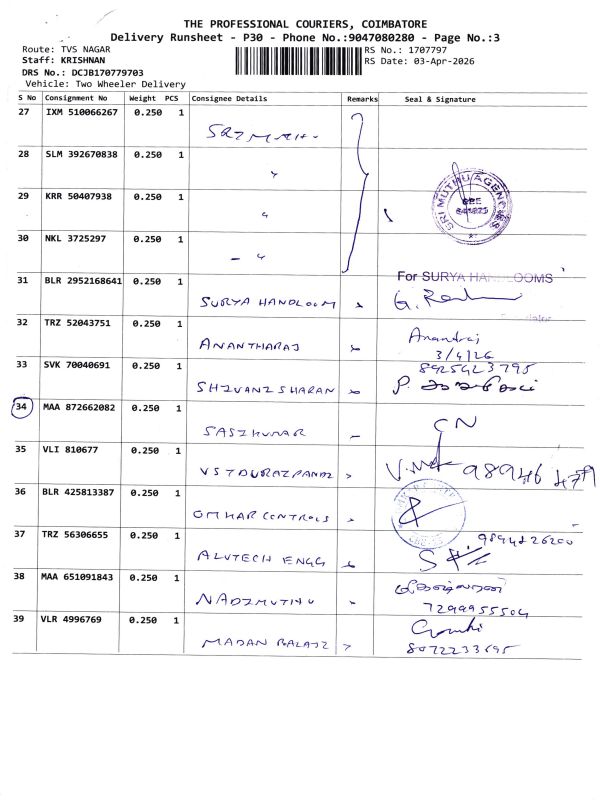 THE PROFESSIONAL COURIERS, COIMBATORE
Delivery Runsheet - P30 - Phone No.:9047080280 - Page No.:3
Route: TVS NAGAR RS No.: 1707797
Staff: KRISHNAN RS Date: 03-Apr-2026
DRS No.: DCJB170779703
Vehicle: Two Wheeler Delivery
S No Consignment No Weight PCS Consignee Details Remarks Seal & Signature
27 IXM 510066267 0.250 1
28 SLM 392670838 0.250 1 "
29 KRR 50407938 0.250 1 "
SRI MUTHU AGENCIES
CBE
641025
30 NKL 3725297 0.250 1 - "
31 BLR 2952168641 0.250 1 SURYA HANDLOOM
For SURYA HANDLOOMS
32 TRZ 52043751 0.250 1 ANANTHARAJ
Anandraj
3/4/26
33 SVK 70040691 0.250 1 SHIVANI SHARAN
8925423795
34 MAA 872662082 0.250 1 SASIKUMAR
CN
35 VLI 810677 0.250 1 VST DURAIPANDI
98946 479
36 BLR 425813387 0.250 1 OMKAR CONTROLS
37 TRZ 56306655 0.250 1 ALUTECH ENGG
9894226200
38 MAA 651091843 0.250 1 NADIMUTHU
7299955504
39 VLR 4996769 0.250 1 MADAN BALAJI
8072233695